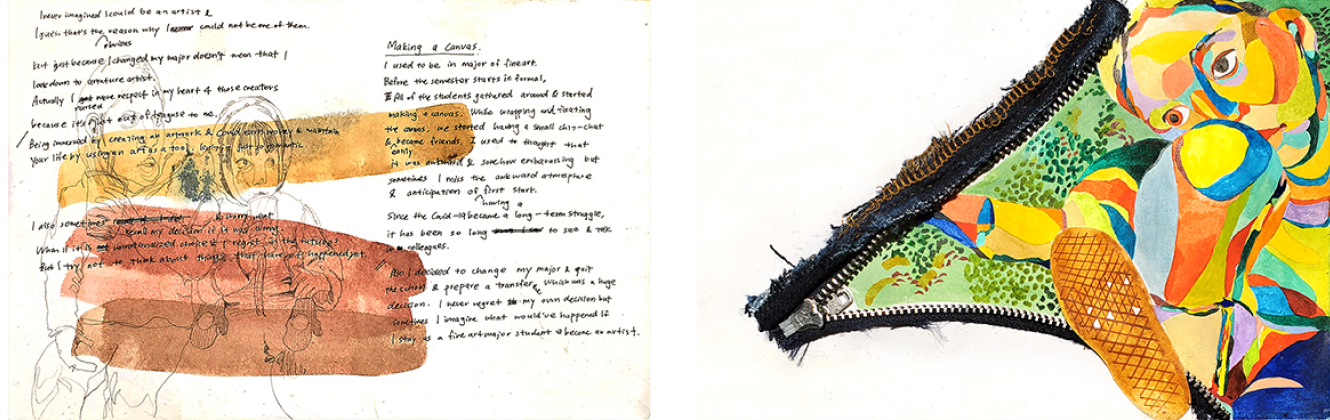 I never imagined I could be an artist &
I guess that's the reason why I could not be one of them.
obvious
but just because I changed my major doesn't mean that I
lookdown to creature artist.
Actually I respect in my heart & those creators
raised
because it's just out of league to me.
Being immersed by creating an artwork & could earn money & maintain
your life by using an art as a tool, just so romantic.
I also sometimes & worry what
if my decision it is was wrong.
What if it is unauthorized choice & I regret in the future?
But I try not to think about things that haven't happened yet.
Making a Canvas.
I used to be in major of fineart.
Before the semester starts in formal,
All of the students gathered around & started
making a canvas. While wrapping and fixating
the canvas, we started having a small chit-chat
& became friends. I used to thought that
easily
it was awkward & somehow embarassing but
sometimes I miss the awkward atmosphere
& anticipation of first start.
having a
Since the Covid-19 became a long-term struggle,
it has been so long to see & talk
colleagues.
Also I decided to change my major & quit
the school & prepare a transfer, which was a huge
decision. I never regret my own decision but
sometimes I imagine what would've happened if
I stay as a fine art major student & became an artist.